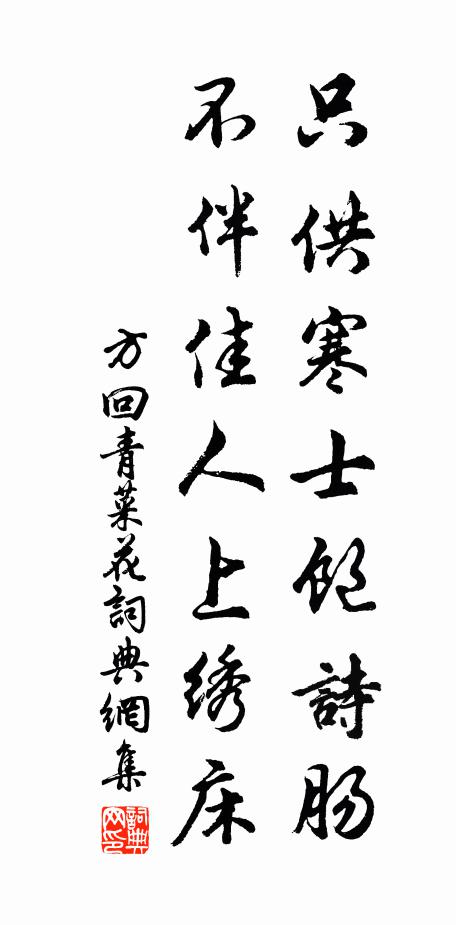 只供寒士飽詩肠
不伴佳人上绣床
方回青菜花詞典網集
詞典网印